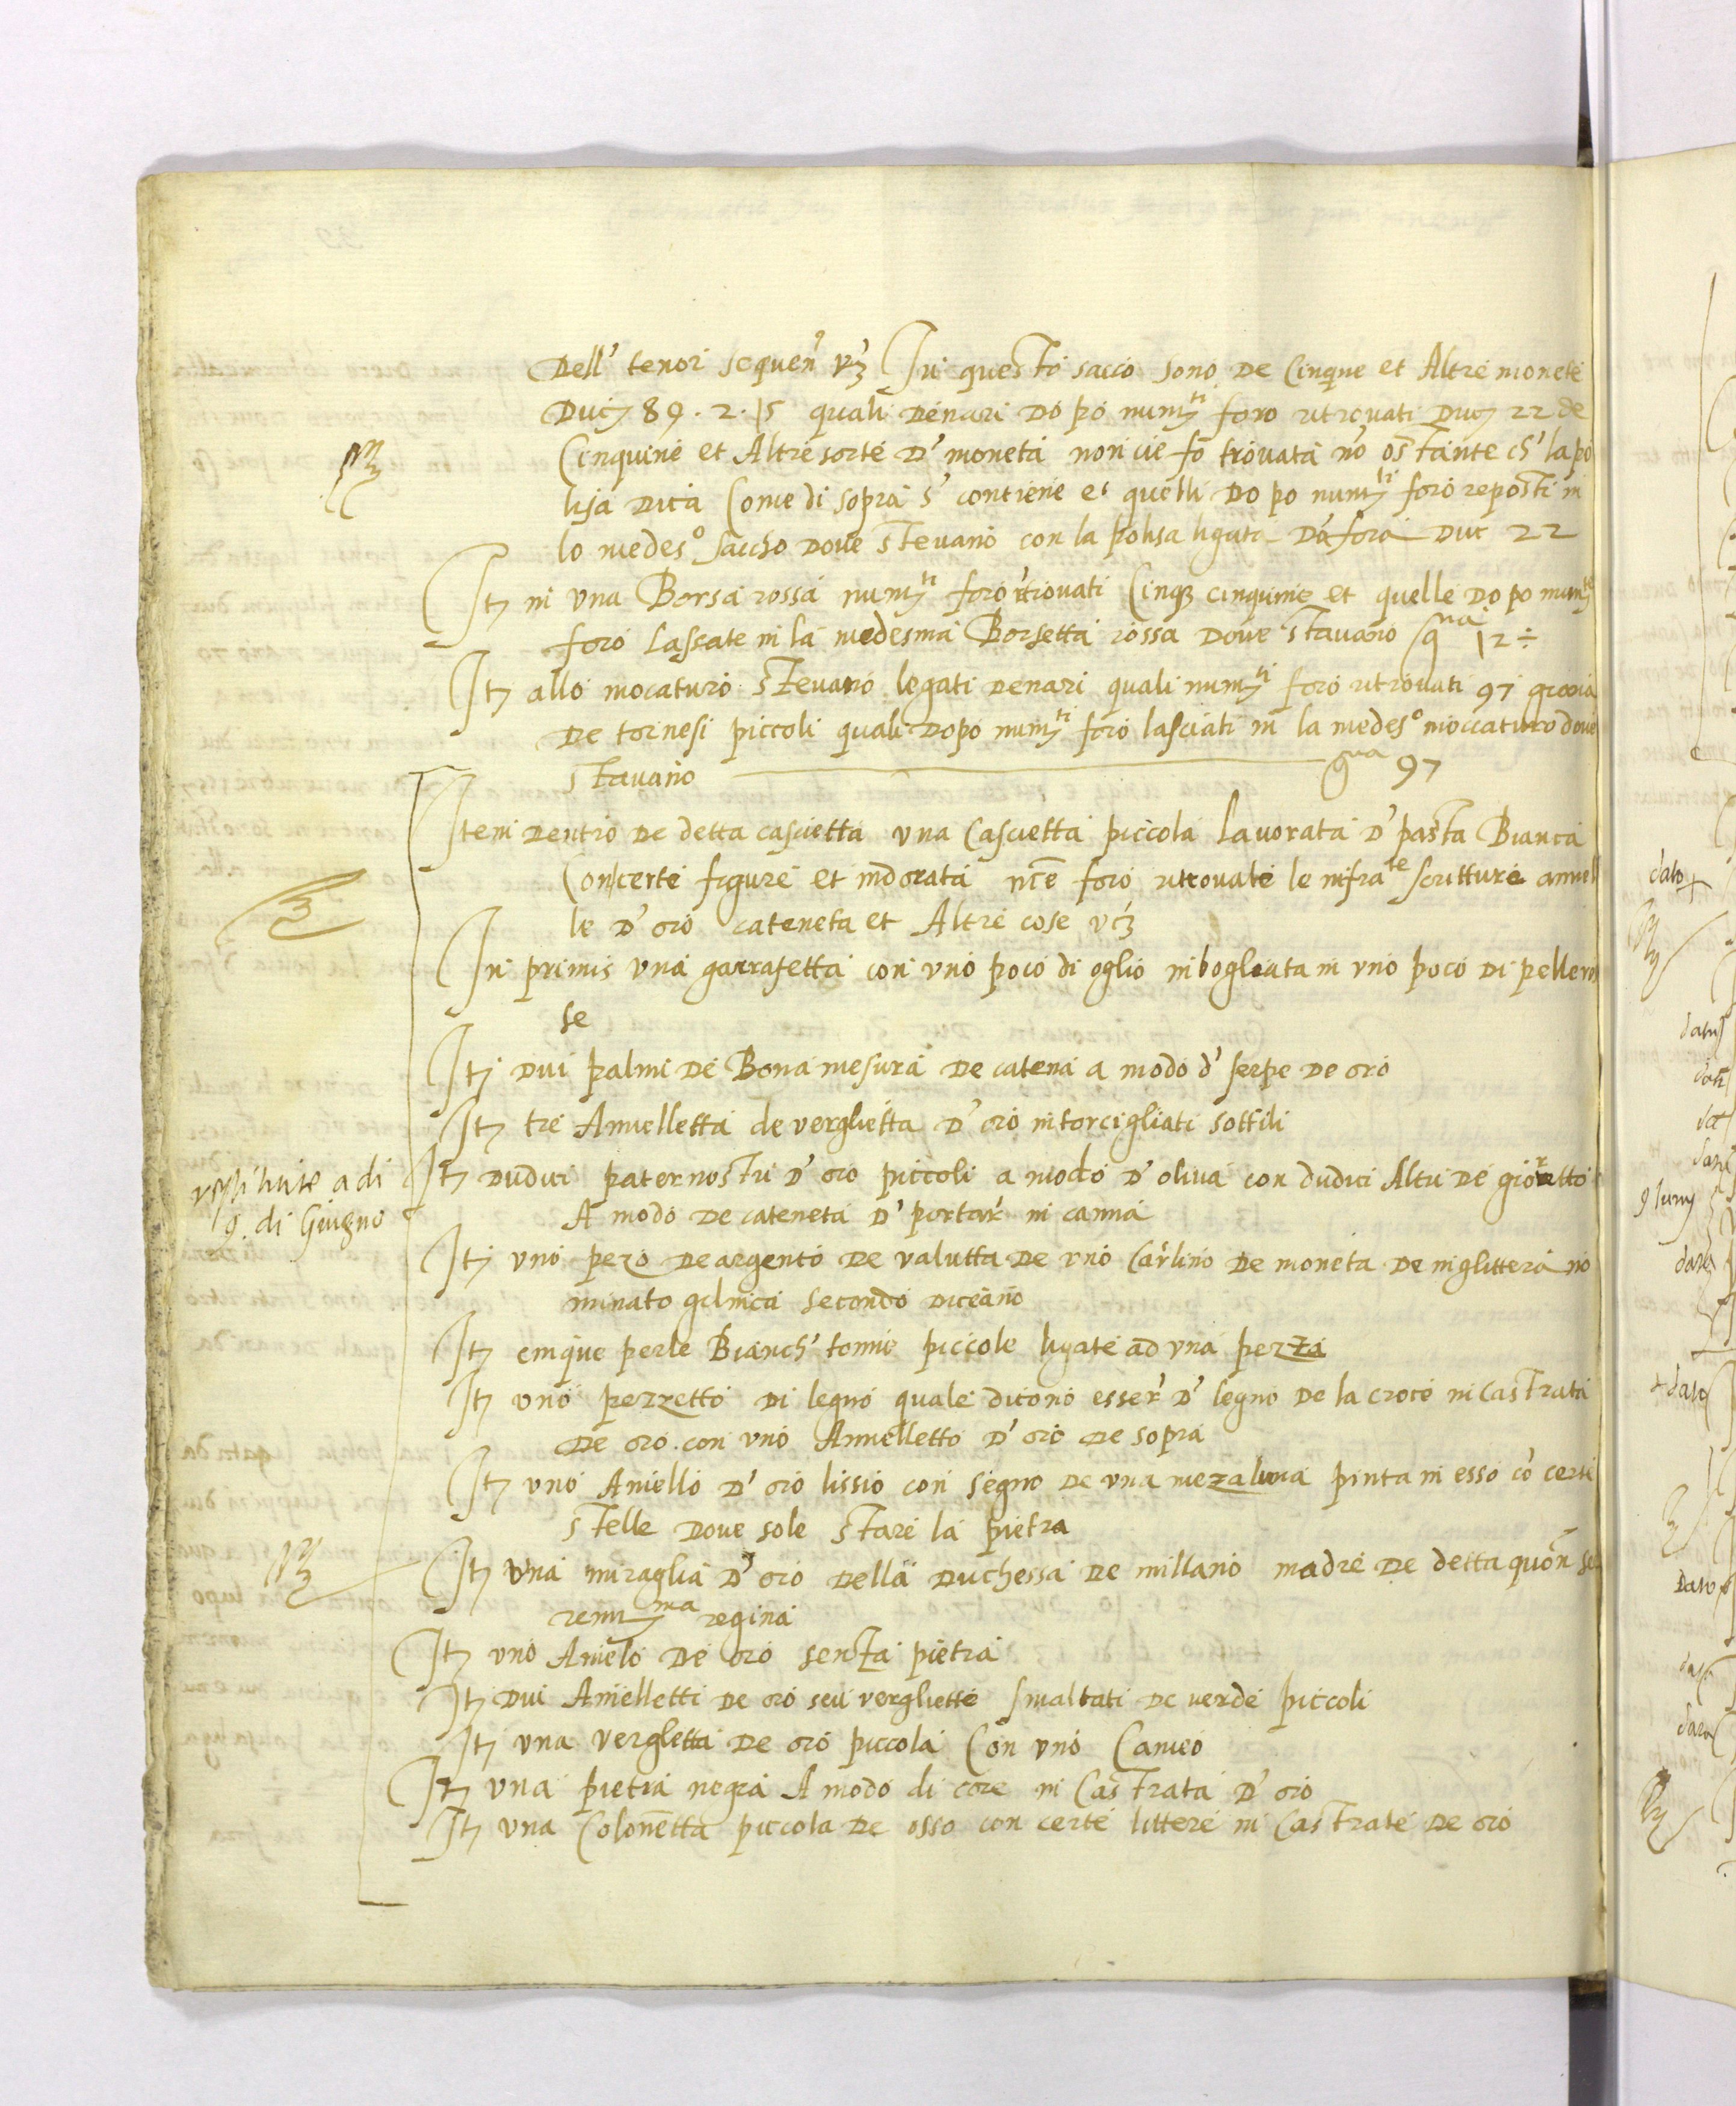 Dell' tenor sequen' vz In questo sacco sono de Cinque et Altre monete
Duc 89 . 2 . 15 quali denari dopo num^ti foro ritrovati Duc 22 de
Cinquine et Altre sorte d' moneta non cie fo trovata no ostante ch' la po
lisa dica Come di sopra s' contiene et quelli dopo num^ti foro reposti in
lo medes° saccho dove stevano con la polisa ligata da fora Duc 22
It in una Borsa rossa num^ti foro ritrovati Cinq cinquine et quelle dopo num^te
foro Lassate in la medesma Borsetta rossa dove stavano g^na 12 ÷
It allo mocaturo stevano legati denari quali num^ti foro ritrovati 97 grana
de tornesi piccoli quali dopo num^ti foro lasciati in la medes° moccaturo dove
stavano g^na 97
Item dentro de detta cascietta una Cascietta piccola Lavorata d' pasta Bianca
Con certe figure et indorata foro ritrovate le infra^te scritture annel
le d' oro cateneta et Altre cose vz
In primis una garrafetta con uno poco di oglio imbogliata in uno poco di pelle ro
se
It dui palmi de Bona mesura de catena a modo d' serpe de oro
It tre Annelletta de verghetta d' oro intorcigliati sottili
restituite a di
9. di Giugno
It dudici paternostri d' oro piccoli a modo d' oliva con dudici Altri de
A modo de cateneta d' portar' in canna
It uno pezo de argento de valutta de uno Carlino de moneta de inglittera no
minato secondo diceano
It cinque perle Bianch' tonne piccole ligate ad una pezza
It uno pezzetto di legno quale dicono esser' d' legno de la croce in Castrata
de oro con uno Annelletto d' oro de sopra
It uno Aniello d' oro lissio con segno de una meza luna pinta in esso co certe
stelle dove sole stare la pietra
It una miraglia d' oro della Duchessa de millano madre de detta quon se
reniss^ma regina
It uno Anielo de oro senza pietra
It dui Anielletti de oro seu verghette smaltati de verde piccoli
It una vergletta de oro piccola Con uno Cameo
It una pietra negra A modo di core in Castrata d' oro
It una Colonetta piccola de osso con certe littere in Castrate de oro
dato
dato
9 Iunij
dato
dato